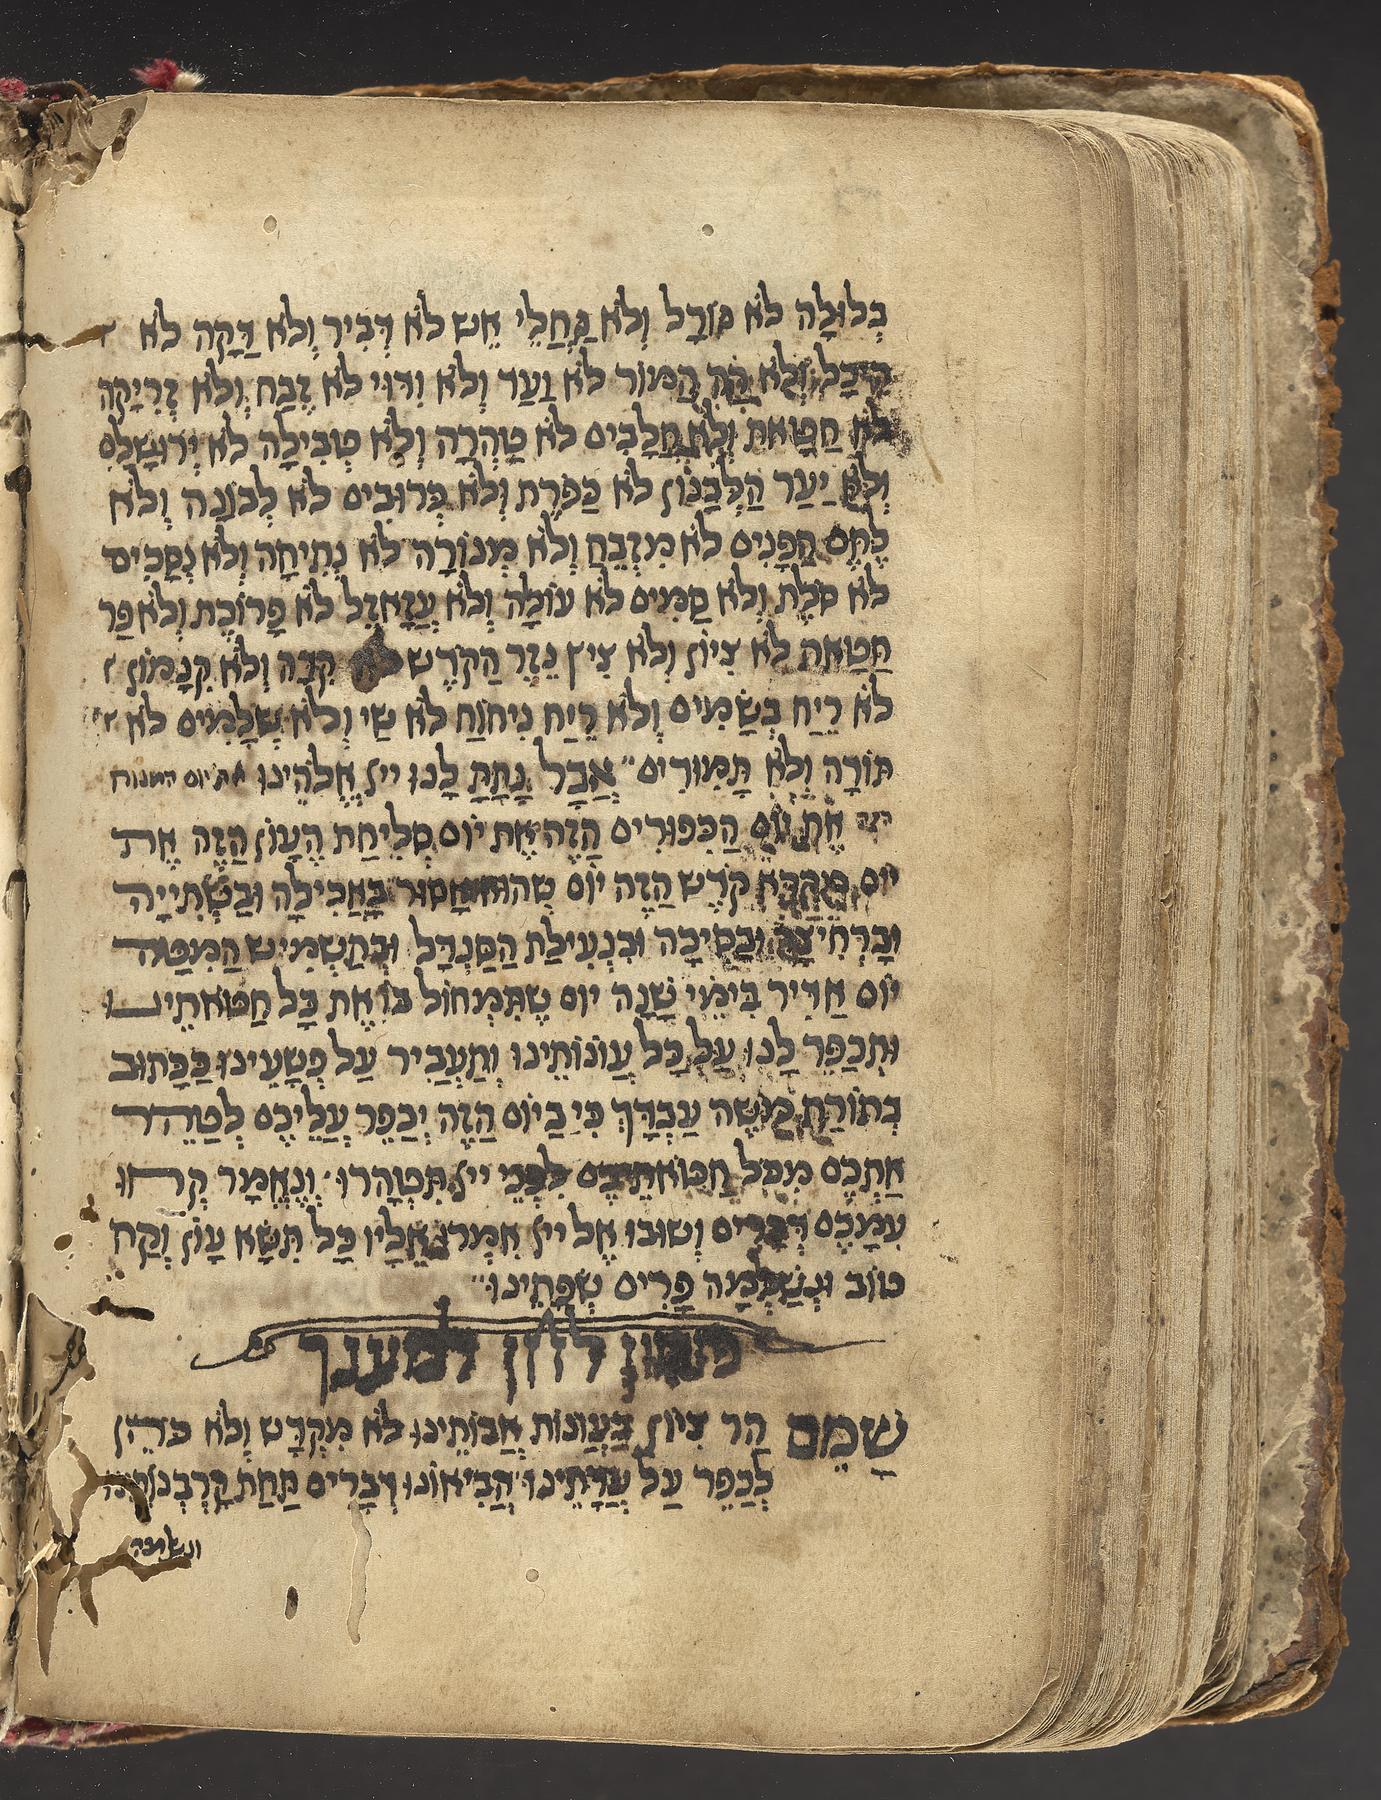 בְּלוּלָה לֹא גּוֹרָל וְלֹא גַּחֲלֵי אֵשׁ לֹא דְּבִיר וְלֹא דַּקָּה לֹא
הֵיכָל וְלֹא הַר הַמּוֹר לֹא וַעַד וְלֹא וִדּוּי לֹא זֶבַח וְלֹא זְרִיקָה
לֹא חַטָּאת וְלֹא חֲלָבִים לֹא טָהֳרָה וְלֹא טְבִילָה לֹא יְרוּשָׁלַ͏ִם
וְלֹא יַעַר הַלְּבָנוֹן לֹא כַפֹּרֶת וְלֹא כְּרוּבִים לֹא לְבוֹנָה וְלֹא
לֶחֶם הַפָּנִים לֹא מִזְבֵּחַ וְלֹא מְנוֹרָה לֹא נְתִיחָה וְלֹא נְסָכִים
לֹא סֹלֶת וְלֹא סַמִּים לֹא עוֹלָה וְלֹא עֲזָאזֵל לֹא פָּרוֹכֶת וְלֹא פַּר
חַטָּאת לֹא צִיּוֹן וְלֹא צִיץ נֵזֶר הַקֹּדֶשׁ לֹא קִדָּה וְלֹא קִנָּמוֹן
לֹא רֵיחַ בְּשָׂמִים וְלֹא רֵיחַ נִיחוֹחַ לֹא שַׁי וְלֹא שְׁלָמִים לֹא
תוֹרָה וְלֹא תְּמוּרִים״ אֲבָל נָתַתָּ לָנוּ ייָ אֱלֹהֵינוּ את יום המנוח
אֶת יוֹם הַכִּפּוּרִים הַזֶּה אֶת יוֹם סְלִיחַת הֶעָוֹן הַזֶּה אֶת
יוֹם מִקְרָא קֹדֶשׁ הַזֶּה יוֹם שֶׁהוּא אָסוּר בַּאֲכִילָה וּבִשְׁתִיָּיה
וּבִרְחִיצָה וּבְסִיכָה וּבִנְעִילַת הַסַּנְדָּל וּבְתַשְׁמִישׁ הַמִּטָּה
יוֹם אַדִּיר בִּימֵי שָׁנָה יוֹם שֶׁתִּמְחוֹל בּוֹ אֶת כָּל חַטֹּאתֵינוּ
וּתְכַפֵּר לָנוּ עַל כָּל עֲוֹנוֹתֵינוּ וְתַעֲבִיר עַל פְּשָׁעֵינוּ כַּכָּתוּב
בְּתוֹרַת מֹשֶׁה עַבְדָּךְ כִּי בַיּוֹם הַזֶּה יְכַפֵּר עֲלֵיכֶם לְטַהֵר
אֶתְכֶם מִכֹּל חַטֹּאתֵיכֶם לִפְנֵי ייָ תִּטְהָרוּ׃ וְנֶאֱמָר קְחוּ
עִמָּכֶם דְּבָרִים וְשׁוּבוּ אֶל ייָ אִמְרוּ אֵלָיו כָּל תִּשָּׂא עָוֹן וְקַח
טוֹב וּנְשַׁלְּמָה פָרִים שְׂפָתֵינוּ״
למענך
שָׁמֵם הַר צִיּוֹן בַּעֲוֹנוֹת אֲבוֹתֵינוּ לֹא מִקְדָּשׁ וְלֹא כֹּהֵן
לְכַפֵּר עַל עֲדָתֵינוּ הֲבִיאוֹנוּ דְּבָרִים תַּחַת קָרְבְּנוֹתֵינוּ
ונשלמה